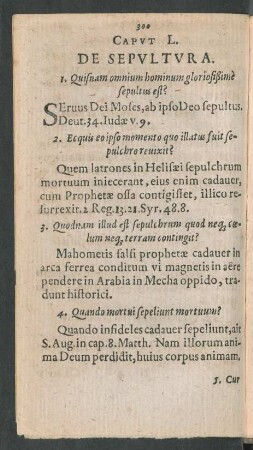 300
CAPVT L.
DE SEPVLTVRA.
1. Quisnam omnium hominum gloriosißimè
sepultus est?
SEruus Dei Moses, ab ipso Deo sepultus,
Deut. 34. Iudæ v. 9.
2. Ecquis eo ipso momento quo illatus fuit se-
pulchro reuixit?
Quem latrones in Helisæi sepulchrum
mortuum iniecerant, eius enim cadauer,
cum Prophetæ ossa contigisset, illico re-
surrexit. 2. Reg. 13. 21. Syr. 48. 8.
3. Quodnam illud est sepulchrum quod neq, cæ-
lum neq, terram contingit?
Mahometis falsi prophetæ cadauer in
arca ferrea conditum vi magnetis in aëre
pendere in Arabia in Mecha oppido, tra-
dunt historici.
4. Quando mortui sepeliunt mortuum?
Quando infideles cadauer sepeliunt, ait
S. Aug. in cap. 8. Matth. Nam illorum ani-
ma Deum perdidit, huius corpus animam.
5. Cur